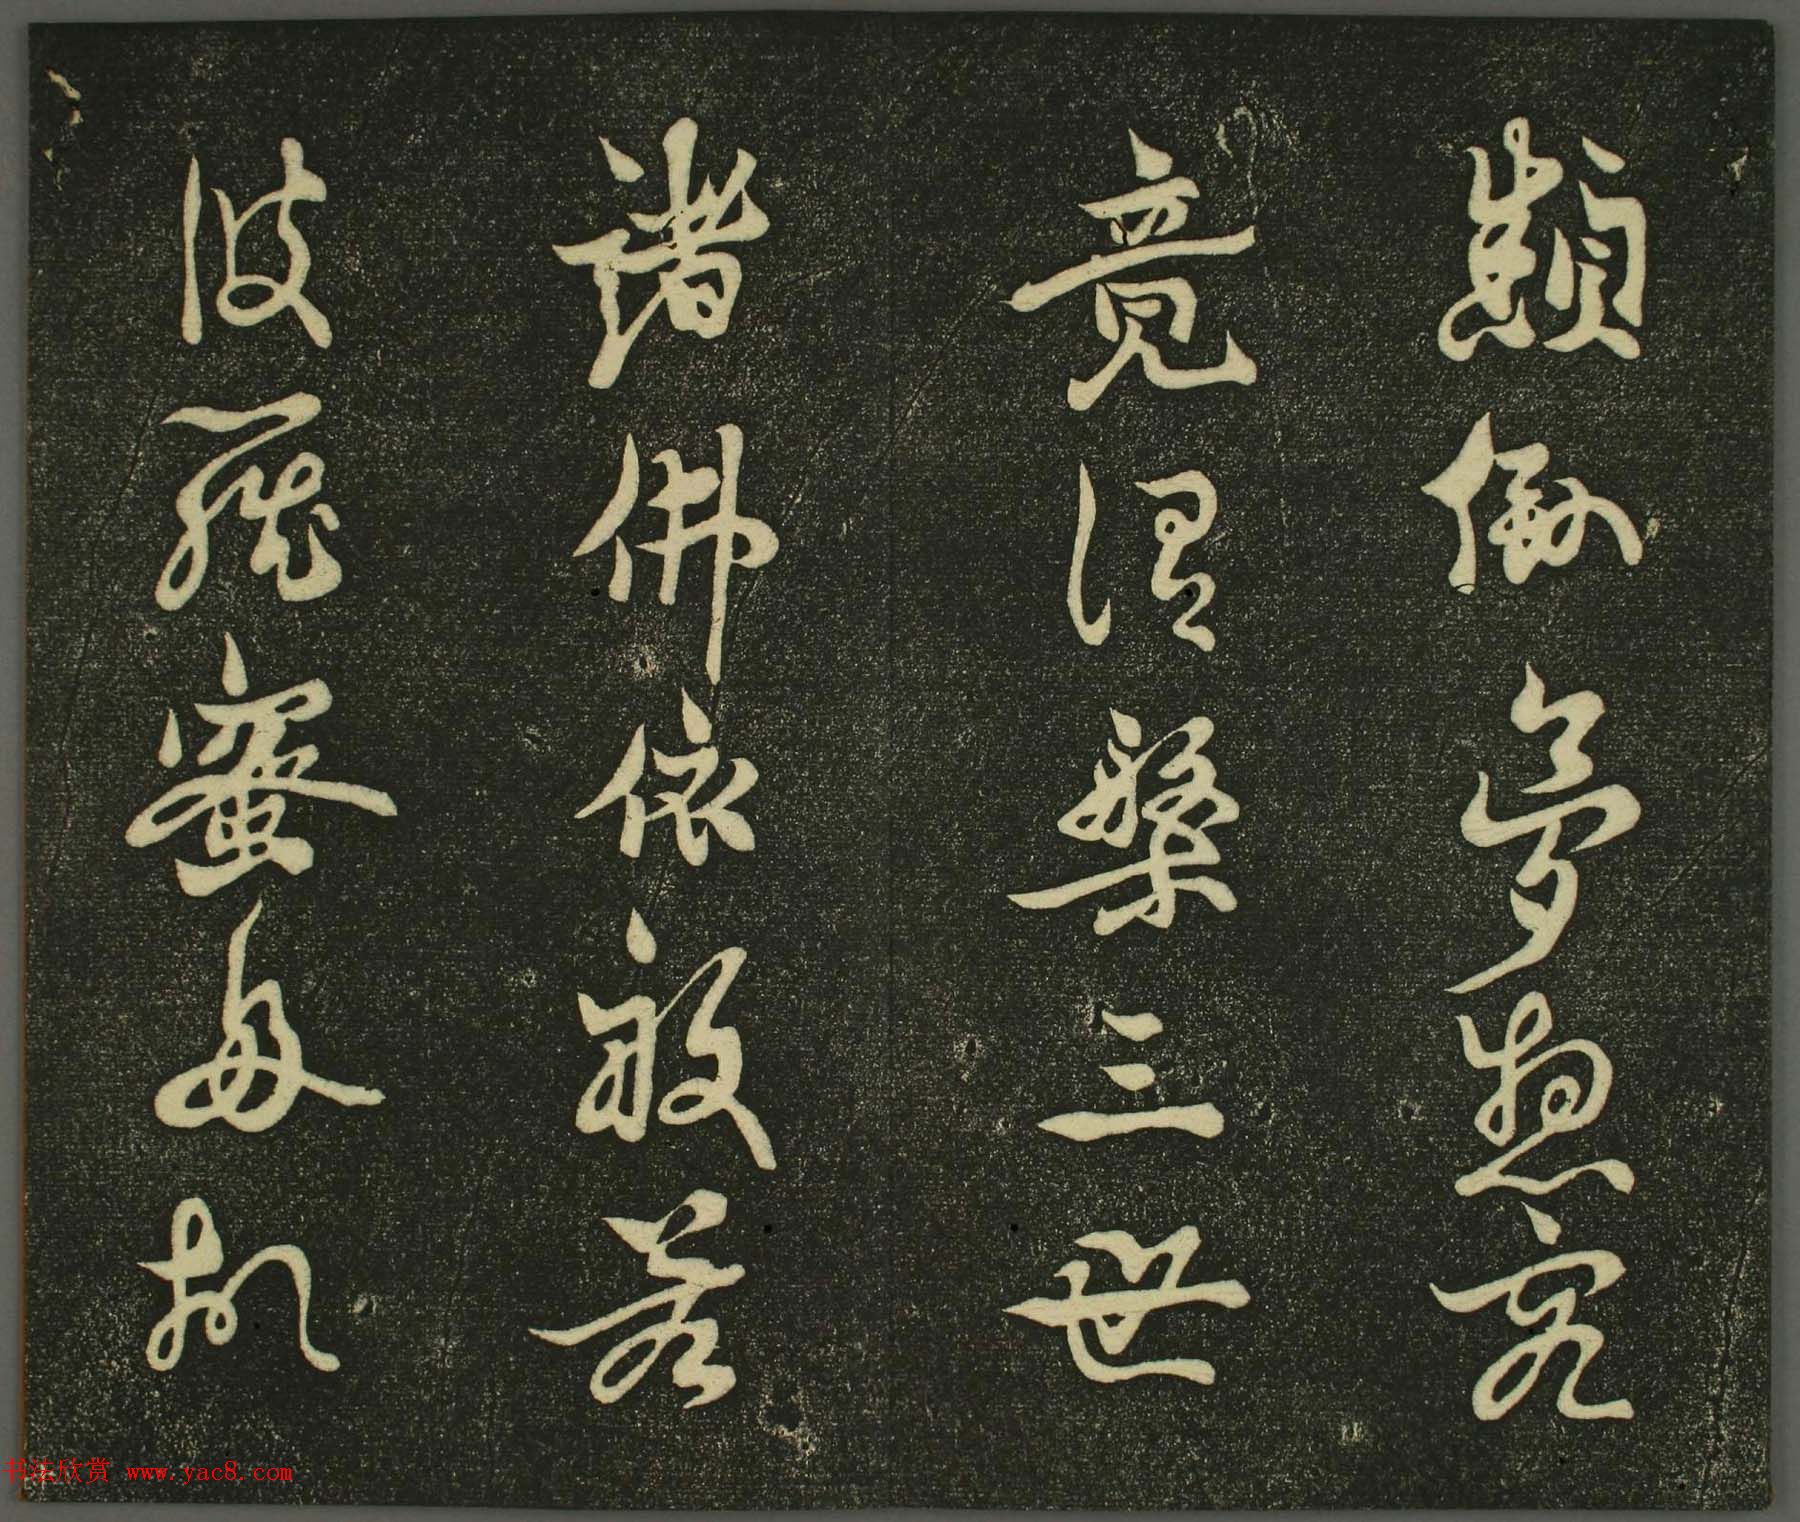 顛倒夢想究
竟涅槃三世
諸佛依般若
波羅蜜多故
书法欣赏 www.yac8.com